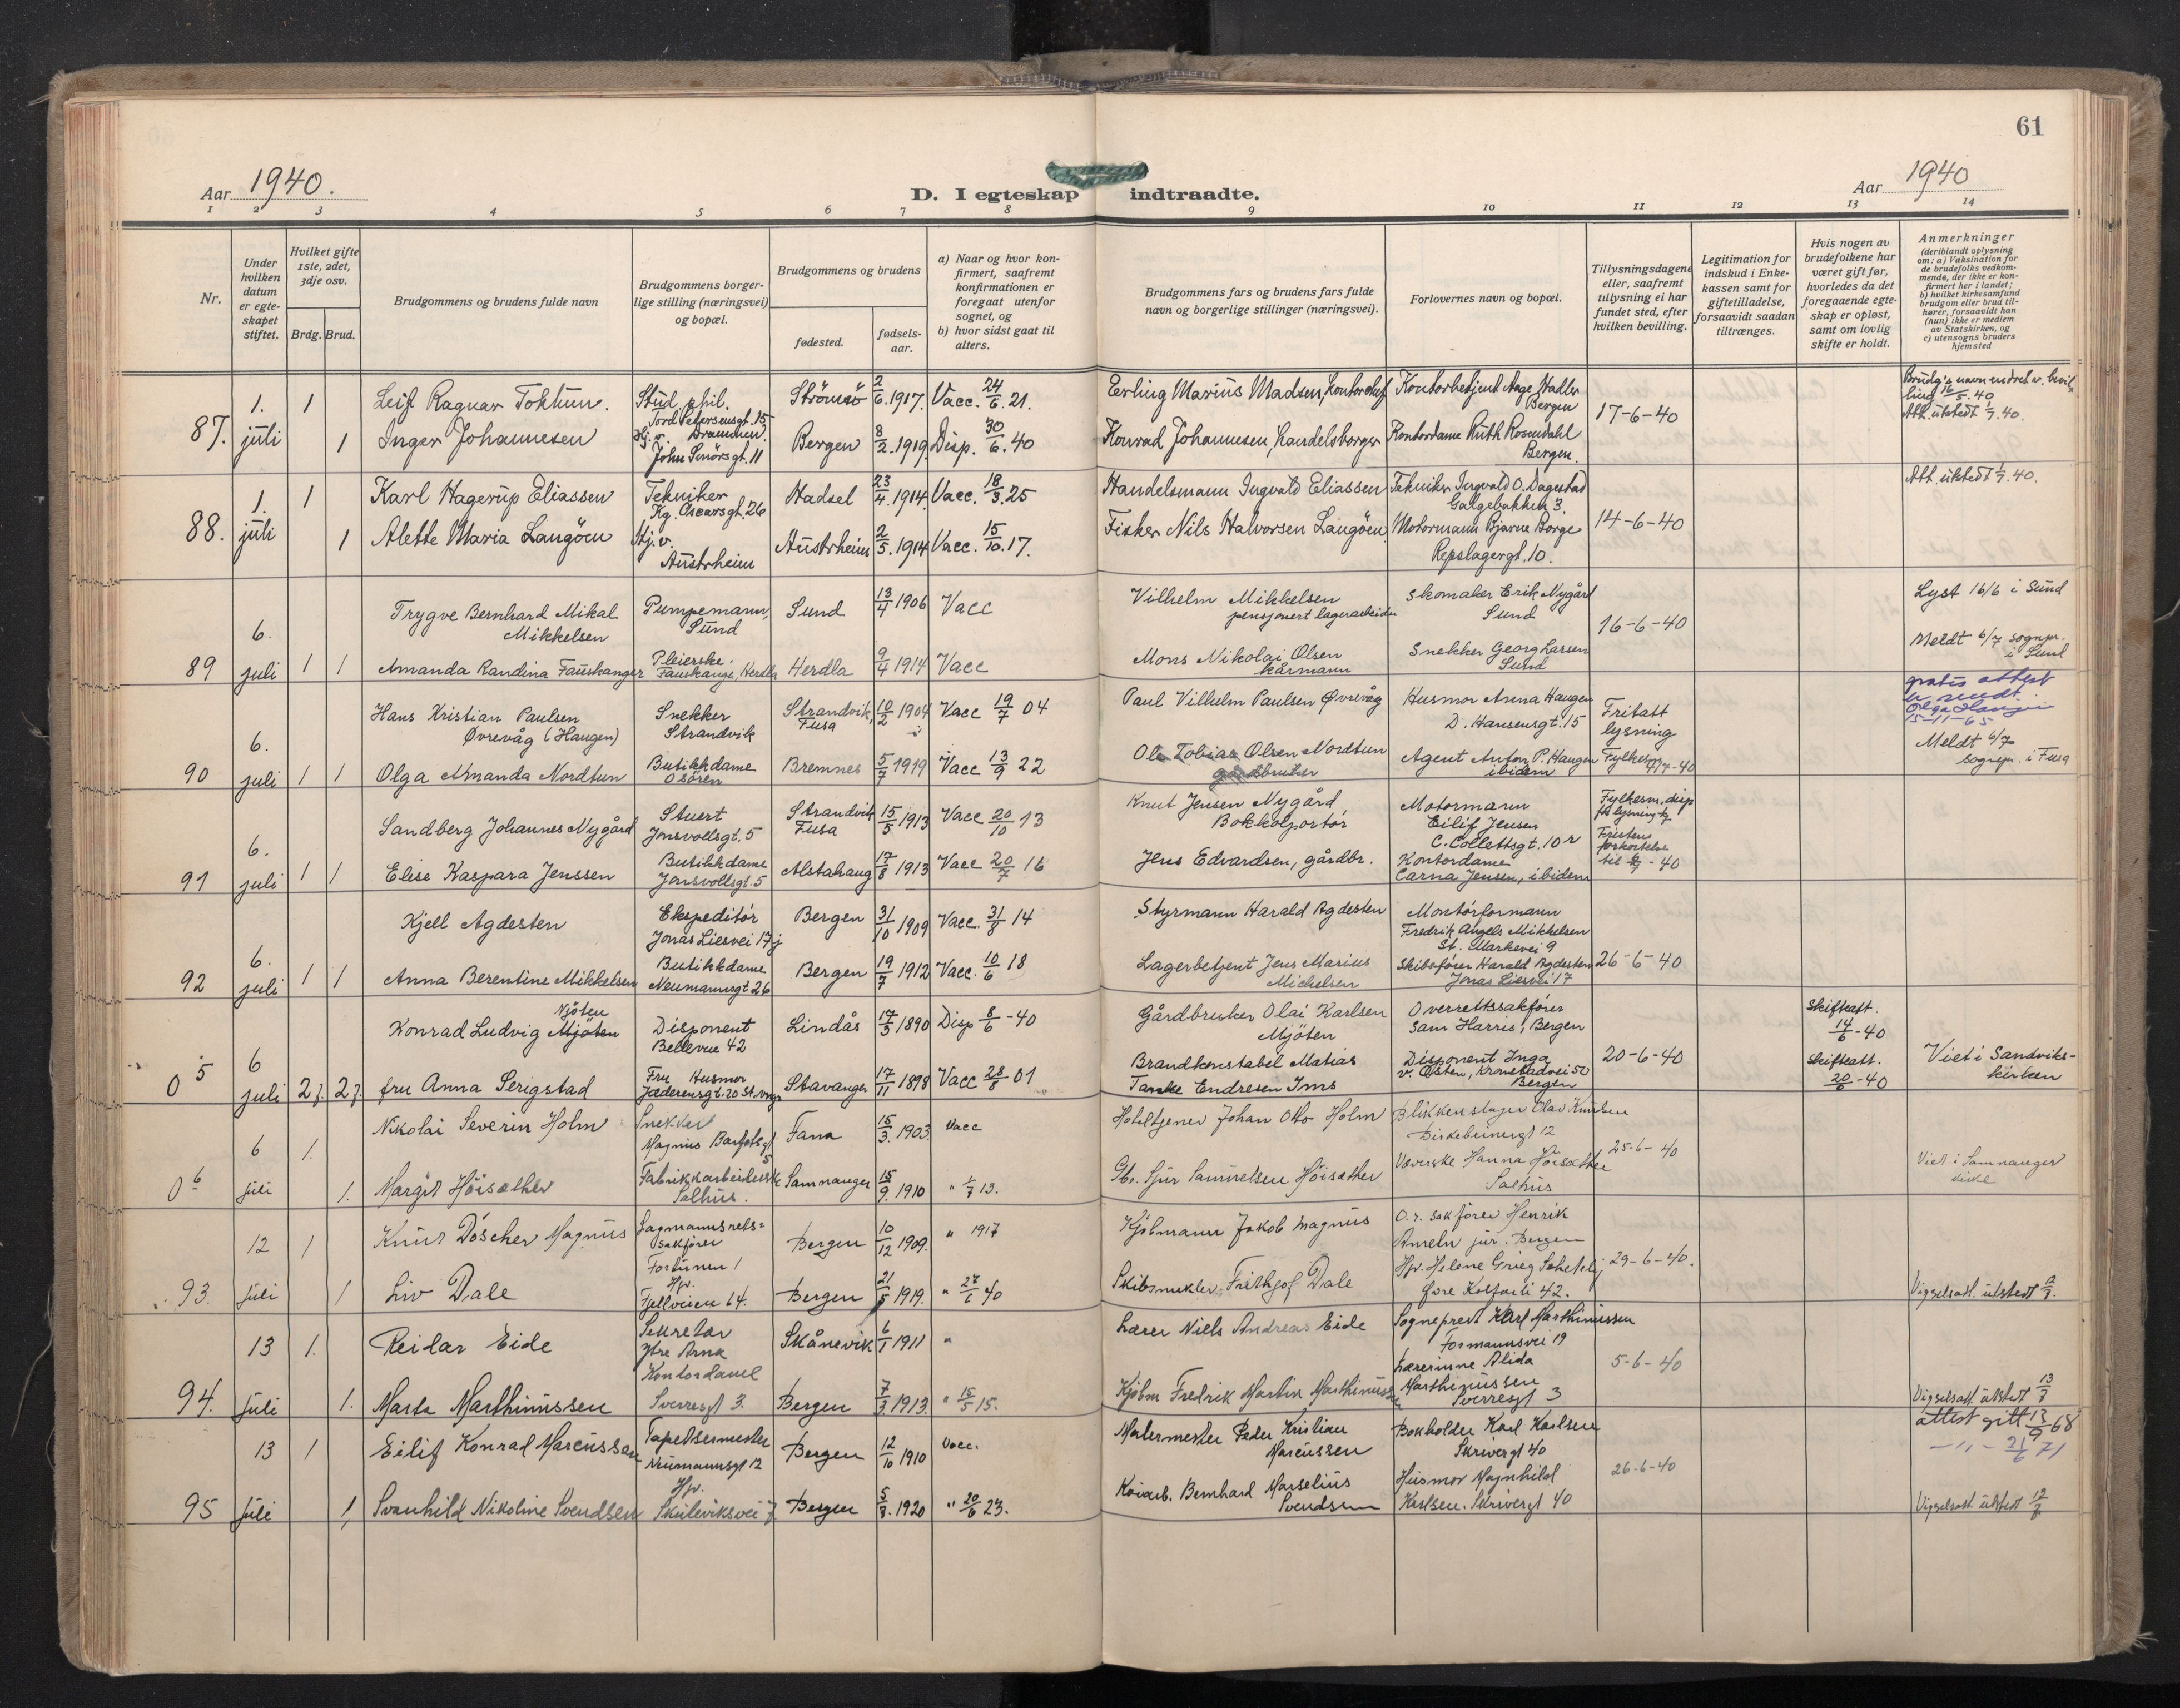 61
Aar 1940.
D. I egteskap indtraadte.
Aar 1940
1 2 3 4 5 6 7 8 9 10 11 12 13 14
Nr.
Under hvilken datum er egteskapet stiftet.
Hvilket gifte 1ste, 2det, 3dje osv.
Brdg. Brud.
Brudgommens og brudens fulde navn
Brudgommens borgerlige stilling (næringsvei) og bopæl.
Brudgommens og brudens
fødested.
fødselsaar.
a) Naar og hvor konfirmert, saafremt konfirmationen er foregaat utenfor sognet, og
b) hvor sidst gaat til alters.
Brudgommens fars og brudens fars fulde navn og borgerlige stillinger (næringsvei).
Forlovernes navn og bopæl.
Tillysningsdagene eller, saafremt tillysning ei har fundet sted, efter hvilken bevilling.
Legitimation for indskud i Enkekassen samt for giftetilladelse, forsaavidt saadan tiltrænges.
Hvis nogen av brudefolkene har været gift før, hvorledes da det foregaaende egteskap er opløst, samt om lovlig skifte er holdt.
Anmerkninger
(deriblandt oplysning om: a) Vaksination for de brudefolks vedkommende, der ikke er konfirmert her i landet;
b) hvilket kirkesamfund brudgom eller brud tilhører, forsaavidt han (hun) ikke er medlem av Statskirken, og
c) utensogns bruders hjemsted
87. 1. juli 1 Leif Ragnar Toktun. Stud. phil. Tord Pedersensgt. 15 Drammen. Strömsö 2/6 1917. Vacc. 24/6. 21. Erling Marius Madsen, kontorchef Kontorbetjent Aage Nadler Bergen 17-6-40 Brudg's navn endret v. bevilling 16/5. 40
Att. utstedt 1/7. 40.
1 Inger Johannesen Hj. v. John Lunds gt. 11 Bergen 8/2. 1919. Disp. 30/6. 40 Konrad Johannesen, handelsborger Kontordame Ruth Rosendahl Bergen.
88. 1. juli 1 Karl Hagerup Eliassen Tekniker Kg. Oscarsgt. 26 Hadsel 23/4. 1914. Vacc. 18/3. 25 Handelsmann Ingvald Eliassen Tekniker Ingvald O. Dagestad Galgebakken 3. 14-6-40 Att. utstedt 1/7. 40.
1 Alette Maria Langöen Hj. v. Austrheim Austrheim 2/5. 1914 Vacc. 15/10. 17. Fisker Nils Halvorsen Langöen Motormann Bjarne Borge Repslagergt. 10.
89 6. juli 1 1 Trygve Bernhard Mikal Mikkelsen Pumpemann, Sund Sund 13/4 1906 Vacc Vilhelm Mikkelsen pensjonert lagerarbeider Skomaker Erik Nygård Sund 16-6-40 Lyst 16/6 i Sund
Amanda Randina Fauskanger Pleierske. Fauskange, Herdla Herdla 9/4 1914 Vacc Mons Nikolai Olsen kårmann Snekker Georg Larsen Sund Meldt 6/7 sognpr. i Sund
90 6. juli 1 1 Hans Kristian Paulsen Øvrevåg (Haugen) Snekker Strandvik Strandvik, Fusa 10/2 1904 Vacc 19/7 04 Paul Vilhelm Paulsen Øvrevåg Husmor Arena Haugen D. Hansensgt. 15 Fritatt lysning gratis attest
sendt. Olga Haugen 15-11-65
Olga Amanda Nordtun Butikkdame Osören Bremnes 5/7 1919 Vacc 13/9 22 Ole Tobias Olsen Nordtun gårdbruker Agent Anton P. Haugen ibidem Fylkesm. 4/7-40 Meldt 6/7 sognpr. i Fusa
91 6. juli 1 1 Sandberg Johannes Nygård Stuert Jonsvollsgt. 5 Strandvik Fusa 15/5 1913 Vacc 20/10 13 Knut Jensen Nygård, Bokkolportör Motormann Eilif Jensen C. Collettsgt. 10 Fylkesm. disp. for lysning
Elise Kaspara Jenssen Butikkdame Jonsvollsgt. 5 Alstahaug 17/8 1913 Vacc 20/7 16 Jens Edvardsen, gårdbr. Kontordame Carna Jensen, ibidem Fristens forkortelse til 6/7-40
92 6. juli 1 1 Kjell Agdesten Ekspeditör Jonas Liesvei 17 j Bergen 31/10 1909 Vacc. 31/8 14 Styrmann Harald Agdesten Montörformann Fredrik Angels Mikkelsen St. Markevei 9
Anna Berentine Mikkelsen Butikkdame Neumannsgt 26 Bergen 19/7 1912 Vacc. 10/6 18 Lagerbetjent Jens Marius Michelsen Skibsförer Harald Agdesten Jonas Liesvei 17 26-6-40
0 5 6 juli 2. 2. Konrad Ludvig Mjöten Njöten Disponent Bellevue 42 Lindås 17/3 1890 Disp 8/6-40 Gårdbruker Olai Karlsen Mjöten Overrettssakförer Sam Harris, Bergen 20-6-40 Skifteatt. 14/6-40
fru Anna Serigstad Fru Husmor Jæderensgt. 20 Stvngr Stavanger 17/11 1898 Vacc 28/8 01 Brandkonstabel Matias Tanke Endresen Ims Disponent Inga v. Østen, Kronstadvei 50 Bergen Skifteatt. 20/6-40 Viet i Sandvikskirken
0 6 6 juli 1. Nikolai Severin Holm Snekker Magnus Barfotsgt 5 Fana 15/3. 1903. Vacc Hoteltjener Johan Otto Holm Blikkenslager Olav Knudsen Birkebeinergt 12 25-6-40
1. Margit Höisæther Fabrikkarbeiderske Salhus. Samnanger 15/9. 1910 " 1/7 13. Gbr. Sjur Samuelsen Höisæther Væverske Hanna Höisæther Salhus Viet i Samnanger kirke
93. 12 juli 1 Knut Döscher Magnus Lagmannsrets=sakförer Fortunen 1 Bergen 10/12 1909. " 1917 Kjöbmann Jakob Magnus O. r. sakförer Henrik Ameln jur. Bergen 29-6-40.
1 Liv Dale Hjv. Fjellveien 64. Bergen 21/8 1919. " 27/6 40 Skibsmekler Frithjof Dale Hjv. Helene Grieg Schetelig Övre Kalfarli 42. Vigselsatt. utstedt 12/7.
94. 13 juli 1. Reidar Eide Sekretær Ytre Arna Skånevik 6/1 1911 " Lærer Niels Andreas Eide Sogneprest Karl Marthinussen Formannsvei 19 5-6-40
1. Marta Marthinussen Kontordame Sverresgt 3. Bergen 7/3 1913. " 15/5 15. Kjöbm Fredrik Martin Marthinussen Lærerinne Alida Marthinussen Sverresgt 3 Vigselsatt. utstedt 13/7
95 13 juli 1 Eilif Konrad Marcussen Tapetsermester Neumannsgt 12 Bergen 12/10 1910 Vacc. Malermester Peder Kristian Marcussen Bokholder Karl Karlsen Skivergt 40 26-6-40 attest gitt 13/9 68
— " — 21/6 71
1, Svanhild Nikoline Svendsen Hjv. Skuteviksvei 7 Bergen 5/8. 1920 " 20/6 23. Bernhard Marselius Svendsen Husmor Magnhild Karlsen. Skivergt 40 Vigselsatt. utstedt 12/7